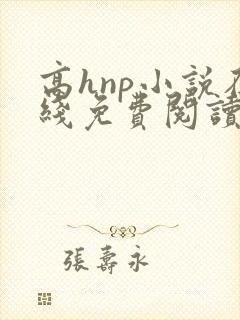 高hnp小説在
綫免費閱讀
張壽永